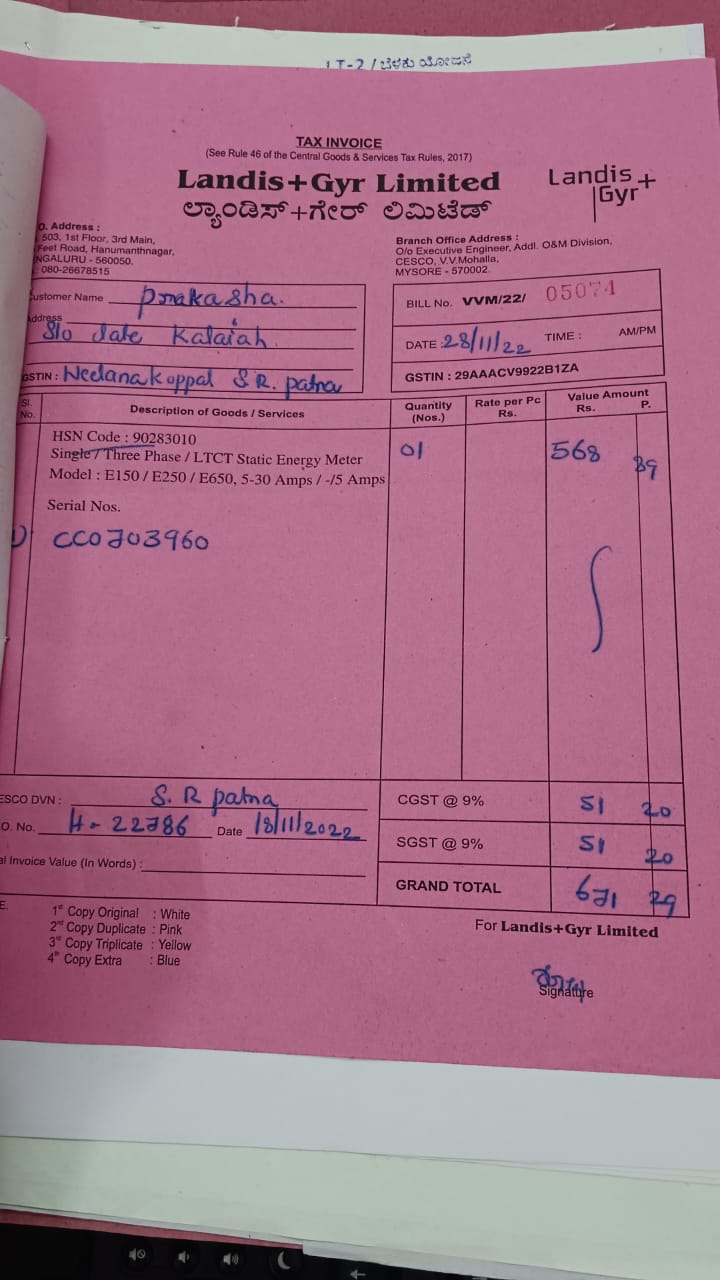 LT-2 / ಬೆಳಕು ಯೋಜನೆ
TAX INVOICE
(See Rule 46 of the Central Goods & Services Tax Rules, 2017)
Landis+Gyr Limited
ಲ್ಯಾಂಡಿಸ್+ಗೇರ್ ಲಿಮಿಟೆಡ್
Landis+
Gyr
O. Address :
503, 1st Floor, 3rd Main,
Feet Road, Hanumanthnagar,
NGALURU - 560050.
: 080-26678515
Branch Office Address :
O/o Executive Engineer, Addl. O&M Division,
CESCO, V.V.Mohalla,
MYSORE - 570002.
Customer Name Prakasha.
Address S/o late Kalaiah
GSTIN : Neelanakoppal S.R. patna
BILL No. VVM/22/ 05074
DATE : 28/11/22 TIME : AM/PM
GSTIN : 29AAACV9922B1ZA
Sl. No. Description of Goods / Services Quantity (Nos.) Rate per Pc Rs. Value Amount Rs. P.
HSN Code : 90283010
Single / Three Phase / LTCT Static Energy Meter 01 568 89
Model : E150 / E250 / E650, 5-30 Amps / -/5 Amps
Serial Nos.
1) CC0703960
ESCO DVN : S. R patna
O. No. H- 22786 Date 18/11/2022
al Invoice Value (In Words) :
CGST @ 9% 51 20
SGST @ 9% 51 20
GRAND TOTAL 671 29
E. 1st Copy Original : White
2nd Copy Duplicate : Pink
3rd Copy Triplicate : Yellow
4th Copy Extra : Blue
For Landis+Gyr Limited
Signature